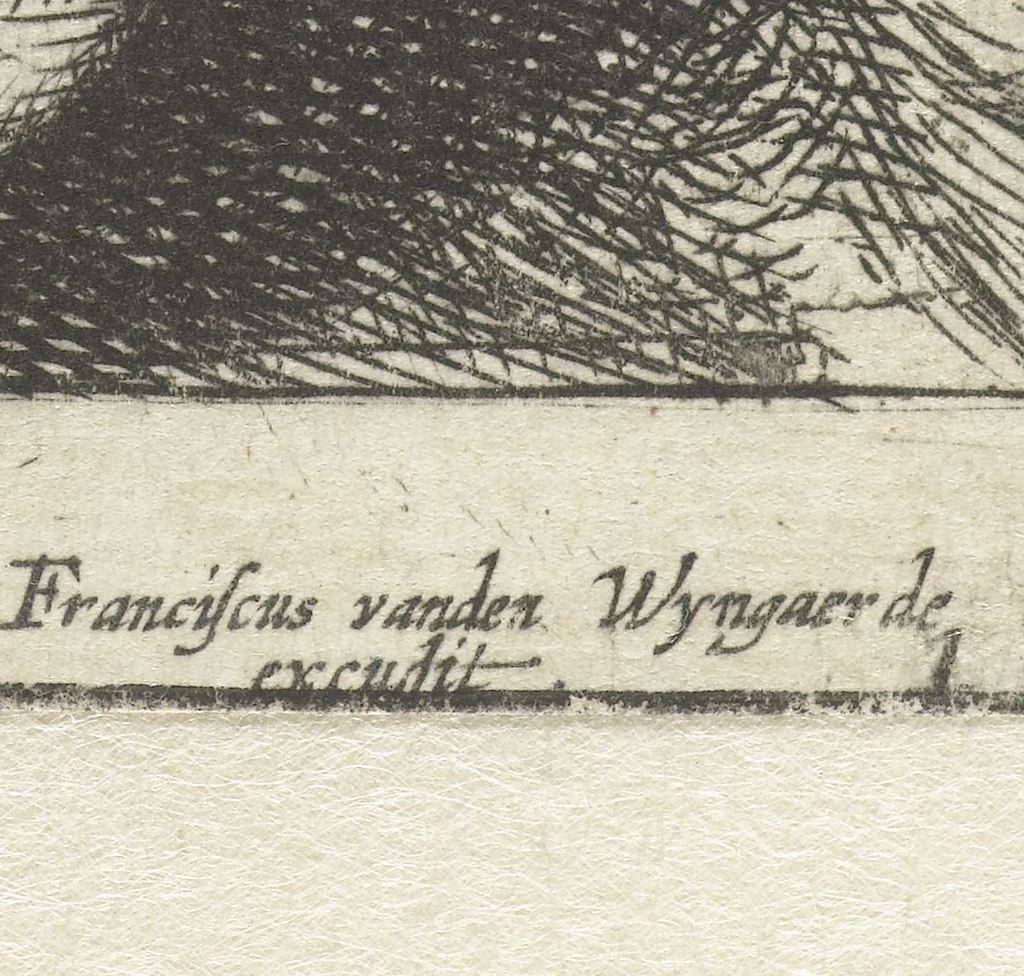 Franciſcus vanden Wyngaerde
excudit
1